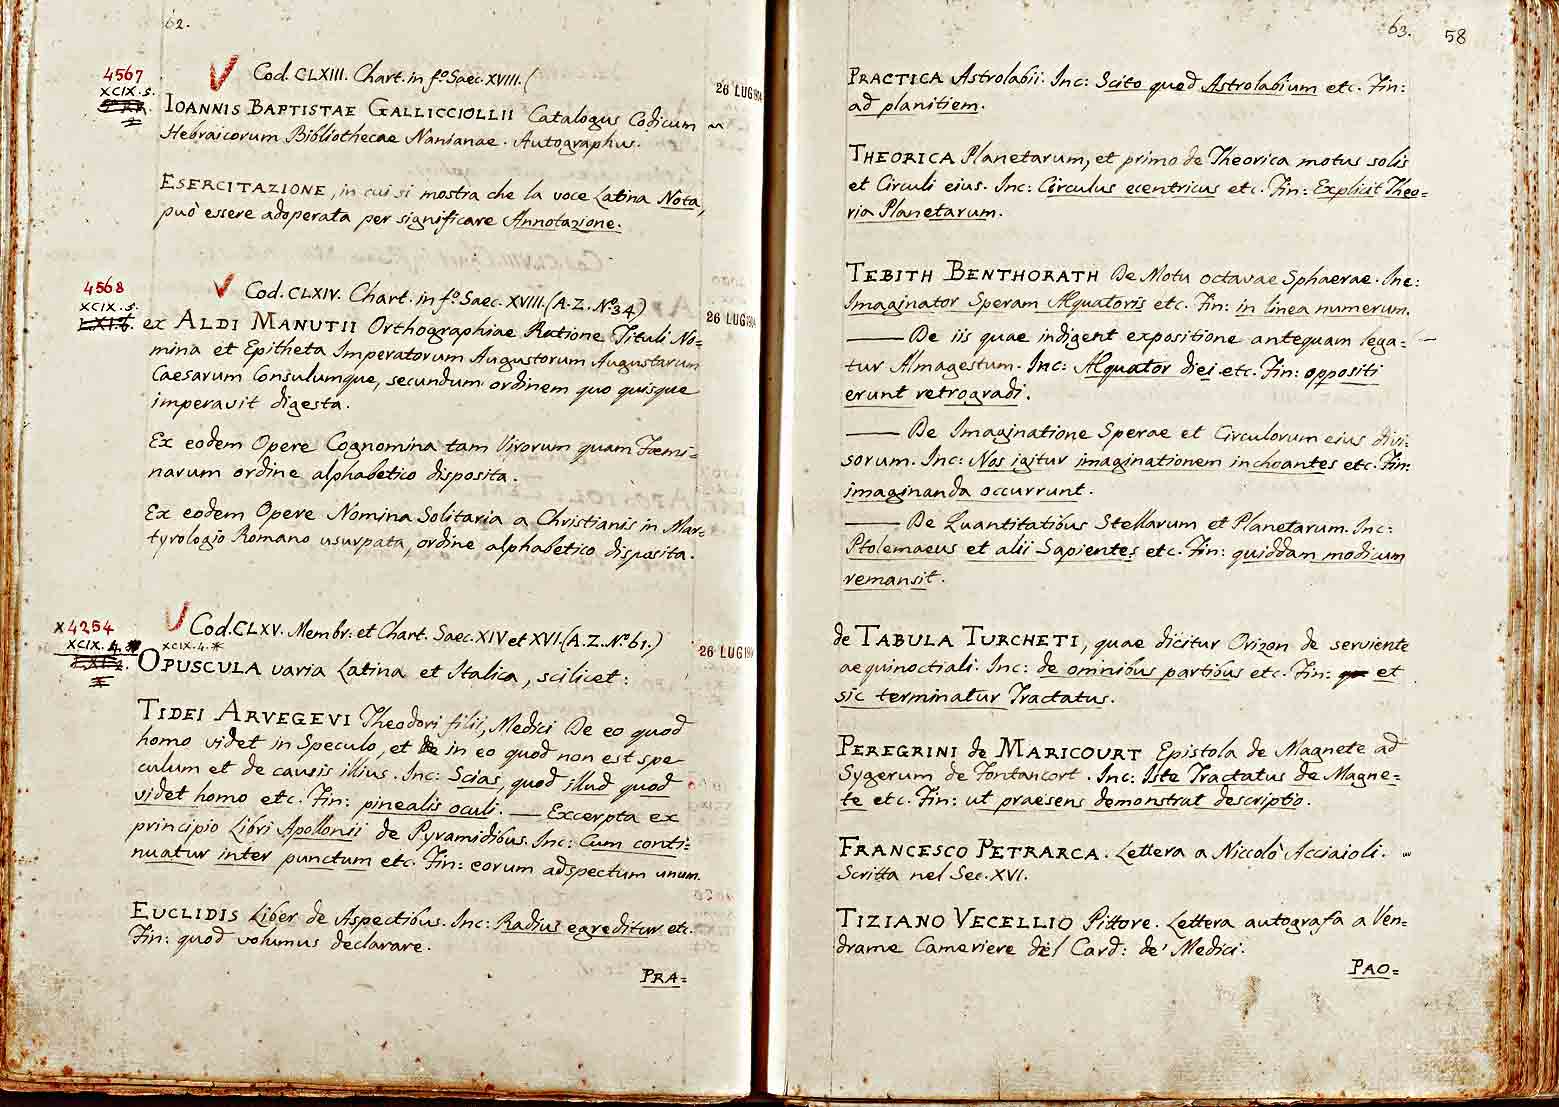 62.
4567
XCIX. 5.
Cod. CLXIII. Chart. in f.º Saec. XVIII. (
26 LUG 19
IOANNIS BAPTISTAE GALLICCIOLLII Catalogus Codicum
Hebraicorum Bibliothecae Nanianae. Autographus.
ESERCITAZIONE, in cui si mostra che la voce Latina Nota,
può essere adoperata per significare Annotazione.
4568
XCIX. 5.
Cod. CLXIV. Chart. in f.º Saec. XVIII. (A.Z. Nº. 34)
26 LUG 19
ex ALDI MANUTII Orthographiae Ratione Tituli No=
mina et Epitheta Imperatorum Augustorum Augustarum
Caesarum Consulumque, secundum ordinem quo quisque
imperavit digesta.
Ex eodem Opere Cognomina tam Virorum quam Foemi=
narum ordine alphabetico disposita.
Ex eodem Opere Nomina Solitaria a Christianis in Mar=
tyrologio Romano usurpata, ordine alphabetico disposita.
x4254
XCIX. 4.
Cod. CLXV. Membr: et Chart. Saec. XIV et XVI. (A.Z. Nº. 61.)
XCIX. 4. *
26 LUG 19
OPUSCULA varia Latina et Italica, scilicet:
TIDEI ARVEGEVI Theodori filii, Medici De eo quod
homo videt in Speculo, et de in eo quod non est spe
culum et de causis illius. Inc: Scias, quod illud quod
videt homo etc. Fin: pinealis oculi. — Excerpta ex
principio Libri Apollonii de Pyramidibus. Inc: Cum conti=
nuatur inter punctum etc. Fin: eorum adspectum unum.
EUCLIDIS Liber de Aspectibus. Inc: Radius egreditur etc.
Fin: quod volumus declarare.
PRA=
63. 58
PRACTICA Astrolabii. Inc: Scito quod Astrolabium etc. Fin:
ad planitiem.
THEORICA Planetarum, et primo de Theorica motus solis
et Circuli eius. Inc: Circulus ecentricus etc. Fin: Explicit Theo=
ria Planetarum.
TEBITH BENTHORATH De Motu octavae Sphaerae. Inc:
Imaginator Speram Æquatoris etc. Fin: in linea numerum.
— De iis quae indigent expositione antequam lega=
tur Almagestum. Inc: Æquator diei etc. Fin: oppositi
erunt retrogradi.
— De Imaginatione Sperae et Circulorum eius divi
sorum. Inc: Nos igitur imaginationem inchoantes etc. Fin:
imaginanda occurrunt.
— De Quantitatibus Stellarum et Planetarum. Inc:
Ptolemaeus et alii Sapientes etc. Fin: quiddam modicum
remansit.
de TABULA TURCHETI, quae dicitur Orizon de serviente
aequinoctiali. Inc: de omnibus partibus etc. Fin: et
sic terminatur Tractatus.
PEREGRINI de MARICOURT Epistola de Magnete ad
Sygerum de Fontancort. Inc: Iste Tractatus de Magne=
te etc. Fin: ut praesens demonstrat descriptio.
FRANCESCO PETRARCA. Lettera a Niccolò Acciaioli.
Scritta nel Sec. XVI.
TIZIANO VECELLIO Pittore. Lettera autografa a Ven=
drame Cameriere del Card: de' Medici.
PAO=